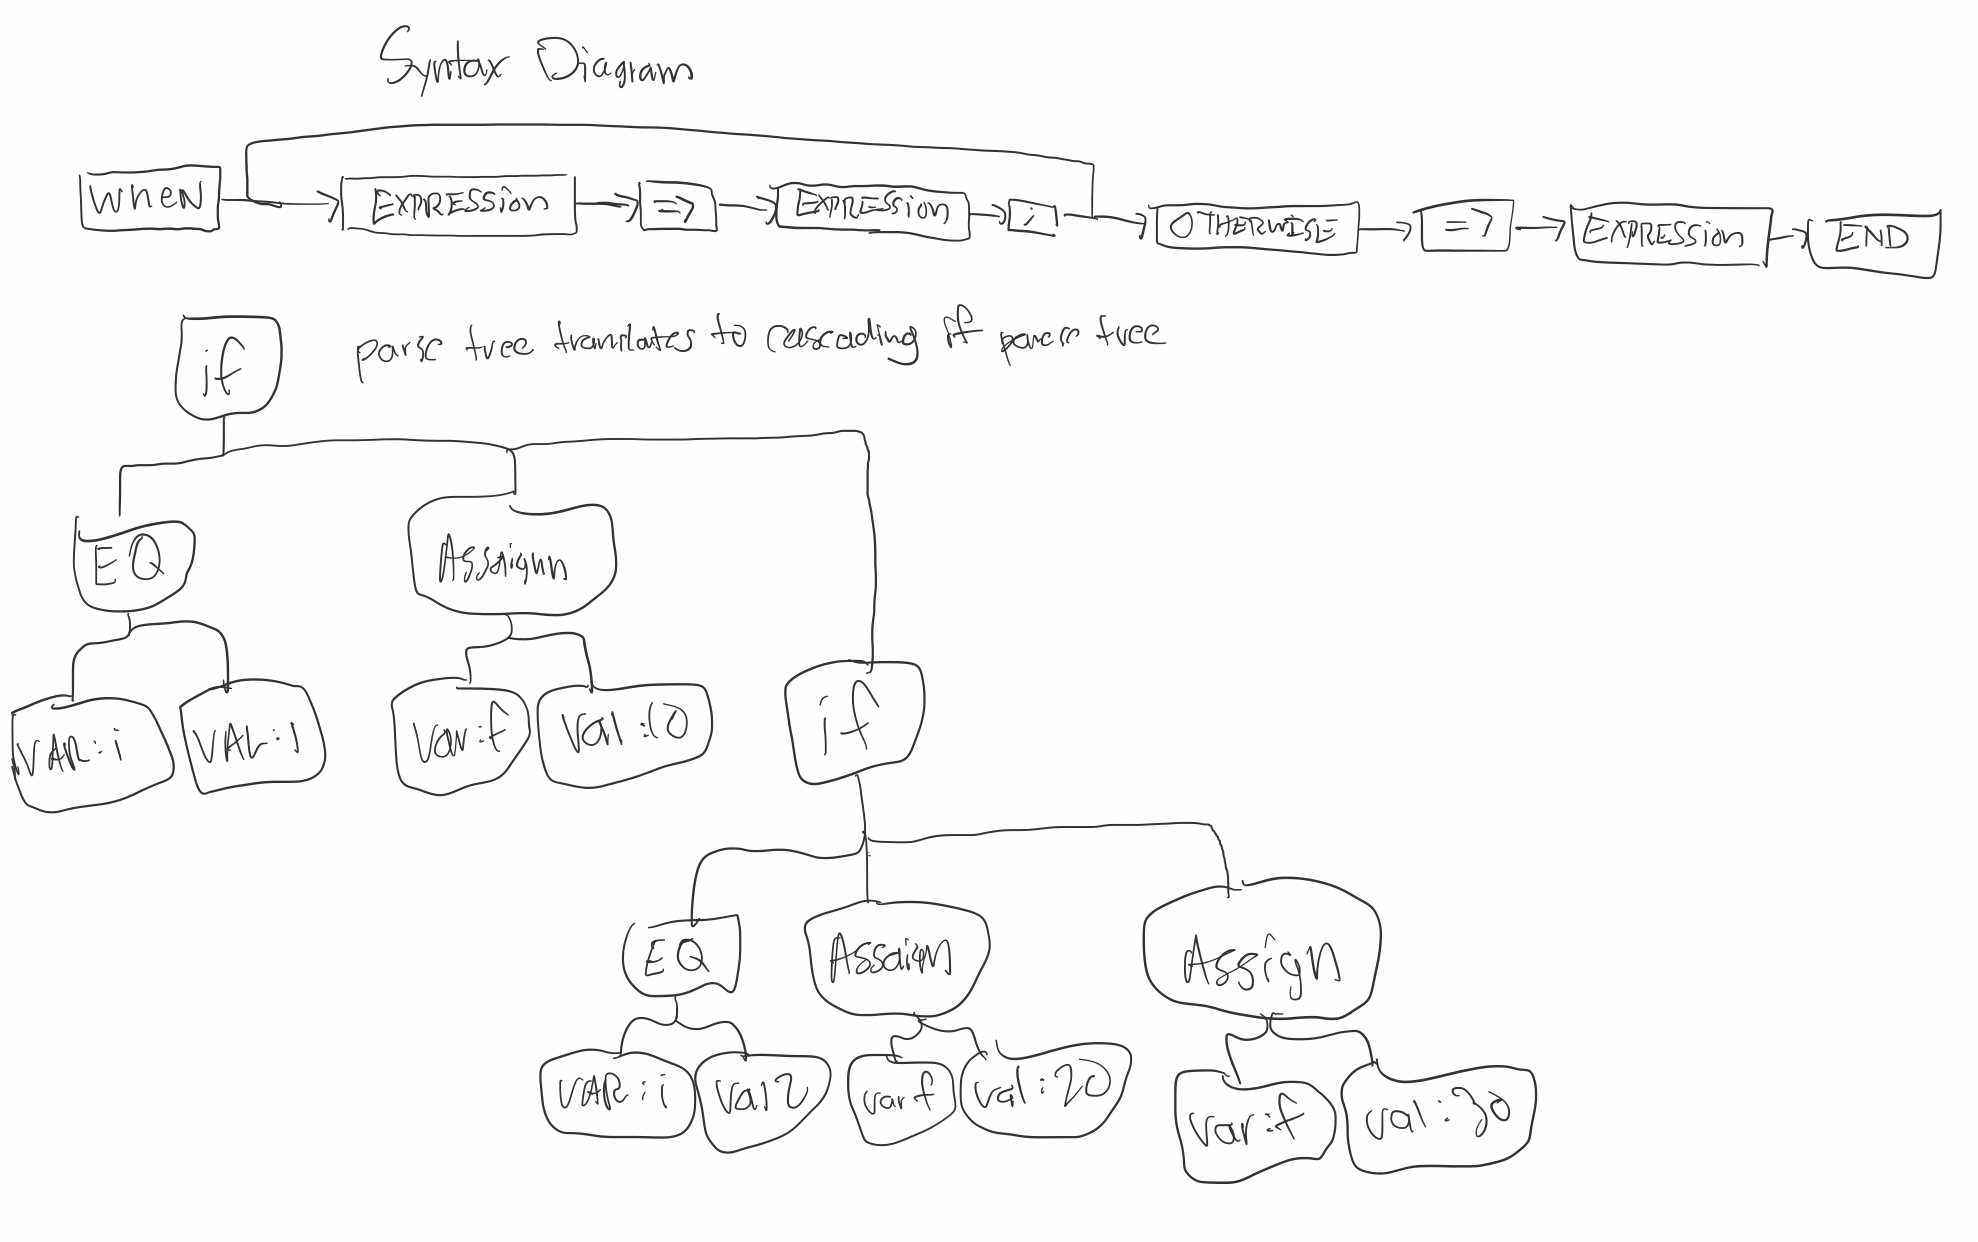 Syntax Diagram
WHEN EXPRESSION => EXPRESSION ; OTHERWISE => EXPRESSION END
if
parse tree translates to cascading if parse tree
EQ Assaignn
VAR:i VAL:1 Var:f Val:10 if
EQ Assaign Assign
VAR:i Val2 varf val:20 var:f val:30